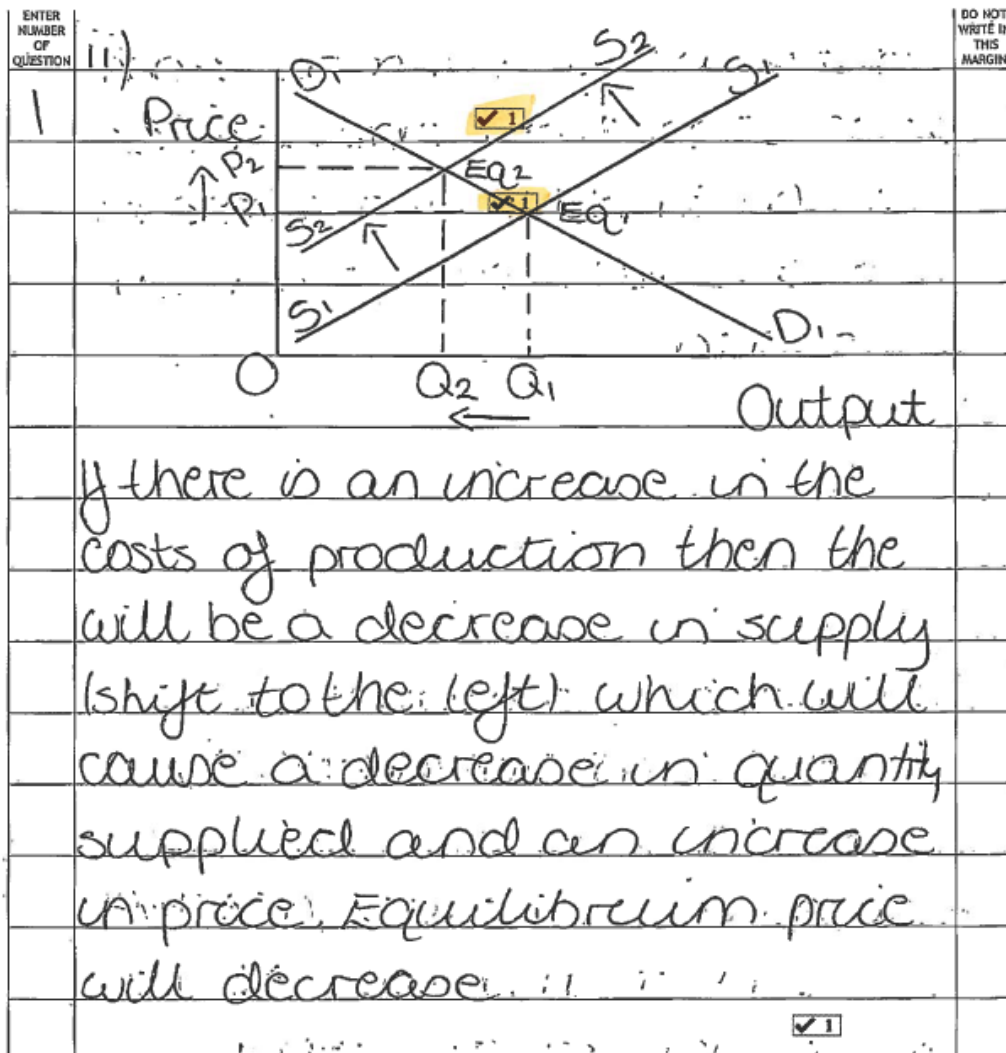 ENTER
NUMBER
OF
QUESTION
DO NOT
WRITE IN
THIS
MARGIN
ii)
1
D1
S2
S1
Price
✓ 1
P2
Eq2
P1
✓ 1
Eq1
S2
S1
D1
O
Q2
Q1
Output
If there is an increase in the
costs of production then the
will be a decrease in supply
(shift to the left) which will
cause a decrease in quantity
supplied and an increase
in price. Equilibrium price
will decrease.
✓ 1